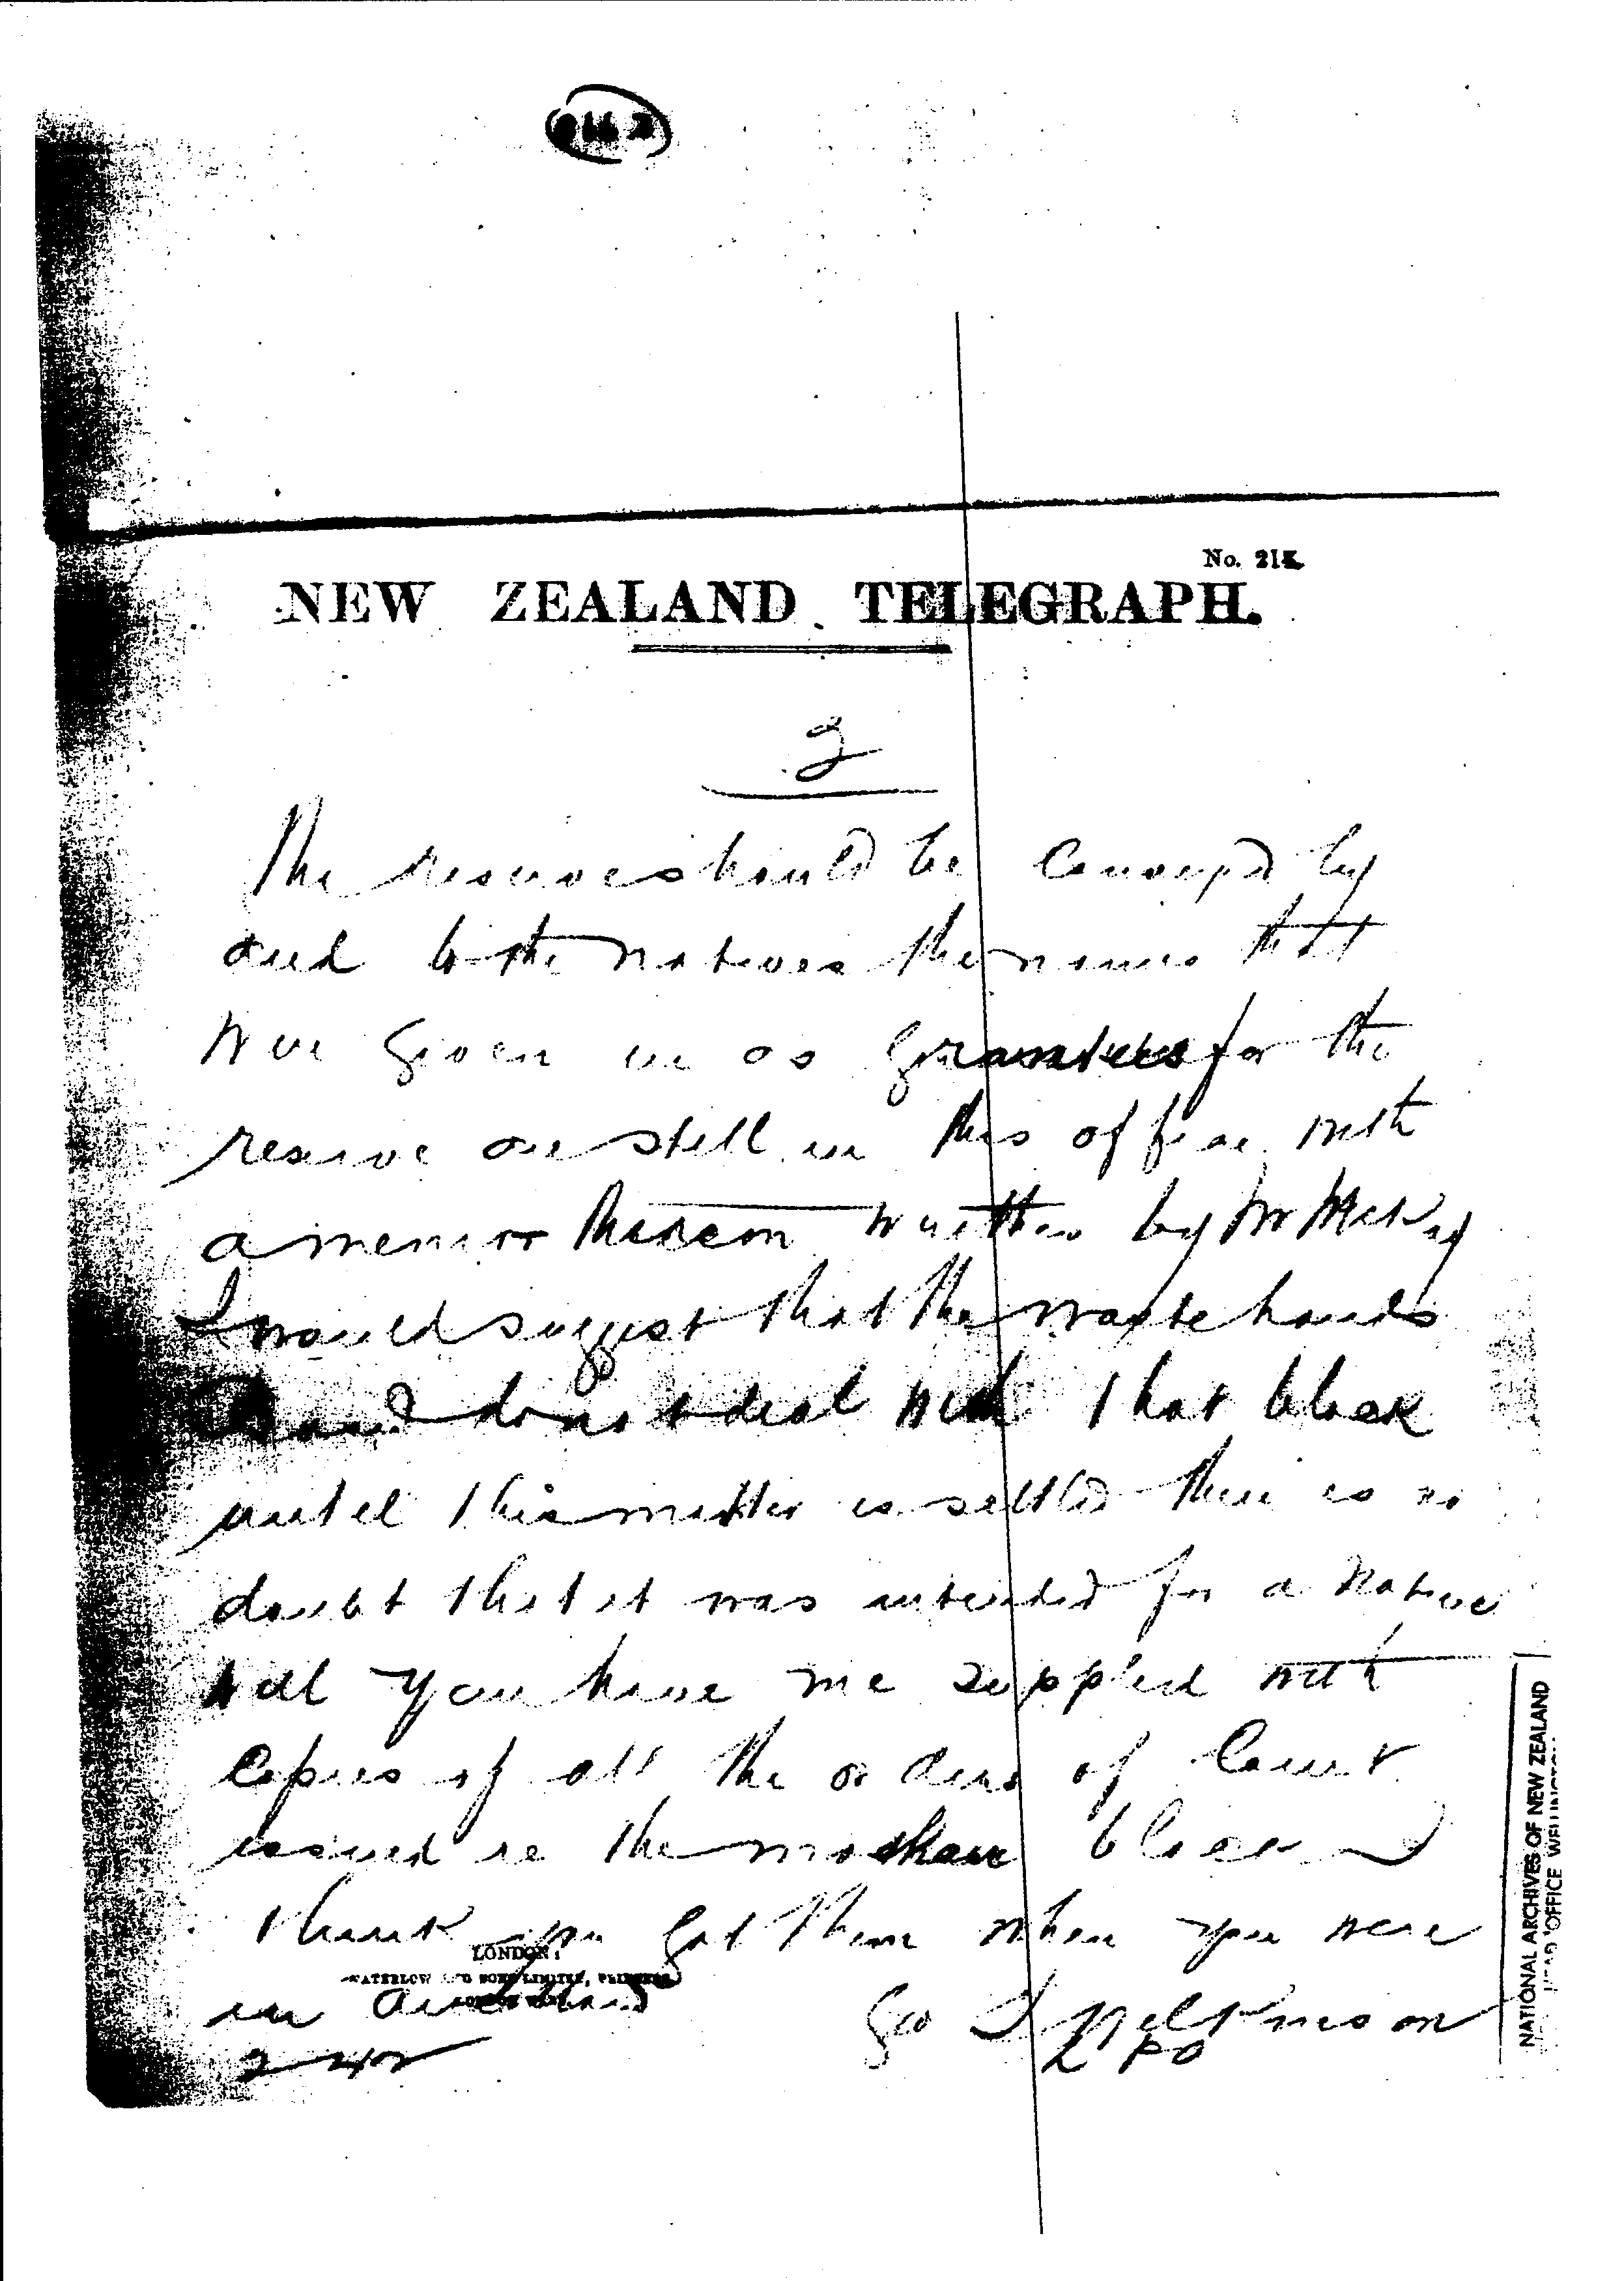 No. 215.
NEW ZEALAND TELEGRAPH.
2
The reserve should be Conveyed by
deed to the natives the names that
were given in as Grantees for the
reserve are still in this office with
a memor thereon written by Mr McKay
I would suggest that the waste lands
Board do not deal with that block
until this matter is settled there is no
doubt that it was intended for a Native
will you have me supplied with
Copies of all the orders of Court
issued re the moehau block I
think you got them when you were
in Auckland
Geo T Wilkinson
L P O
LONDON:
WATERLOW AND SONS LIMITED, PRINTERS,
LONDON WALL
NATIONAL ARCHIVES OF NEW ZEALAND
HEAD OFFICE WELLINGTON